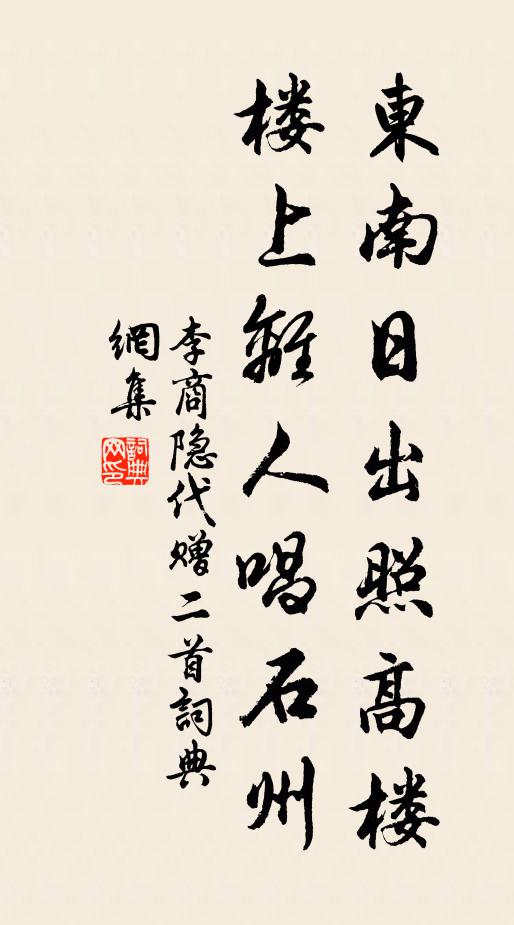 東南日出照髙楼
楼上離人唱石州
李商隐代赠二首詞典
網集
詞典网印